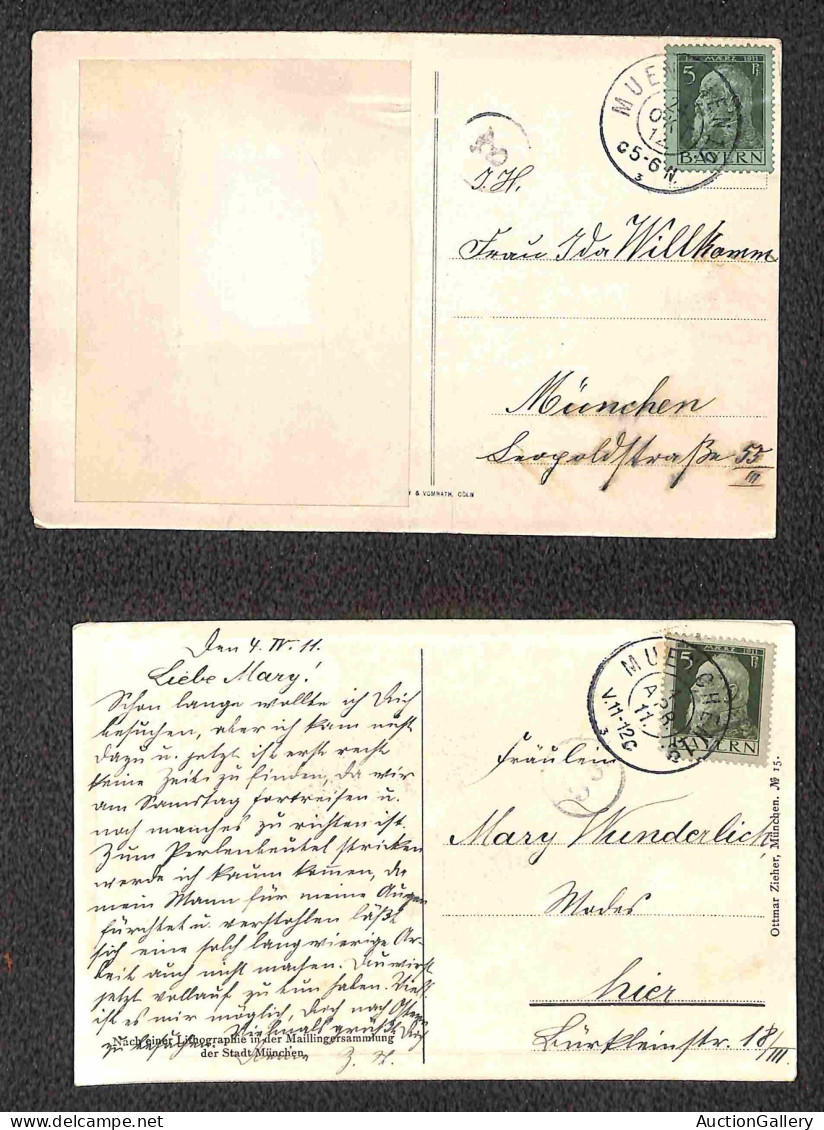 12. MÆRZ 1911
5 Pf
BAYERN
MUENCHEN
12
5-6 N.
3
I. H.
Frau Ida Willkomm
München
Leopoldstraße 55
III
& VOMRATH, CÖLN
Den 4. IV. 11.
Liebe Mary!
Schon lange wollte ich Dich
besuchen, aber ich kam nicht
dazu u. jetzt ist erst recht
keine Zeit zu finden, da wir
am Samstag fortreisen u.
noch manches zu richten ist.
Zum Perlenbeutel stricken
werde ich kaum kommen, da
mein Mann für meine Augen
fürchtet u. verstohlen läßt
sich eine solch langwierige Ar-
beit auch nicht machen. Du wirst
jetzt vollauf zu tun haben. Viell.
ist es mir möglich, Dich nach Ostern
zu besuchen. Vielmals grüßt Dich
Nach einer Lithographie in der Maillingersammlung
der Stadt München.
MÆRZ 1911
5 Pf
BAYERN
MUENCHEN
APR
11
V. 11-12
3
Fräulein
Mary Wunderlich,
Modes
hier
Bürkleinstr. 18/III.
Ottmar Zieher, München. № 15.
AuctionGallery